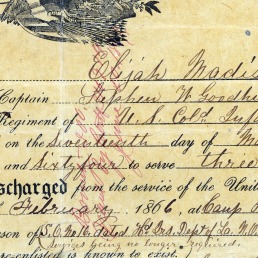 Elijah Madis
Captain Stephen W Goodhu
Regiment of U. S. Cold Infa
on the seventeenth day of Ma
and sixty four to serve three
scharged from the service of the Unite
February 1866 at Camp
son of S.O. No 16. dated Hd Qrs Dept of La. N.O.
Services being no longer required.
re-enlisted is known to exist.